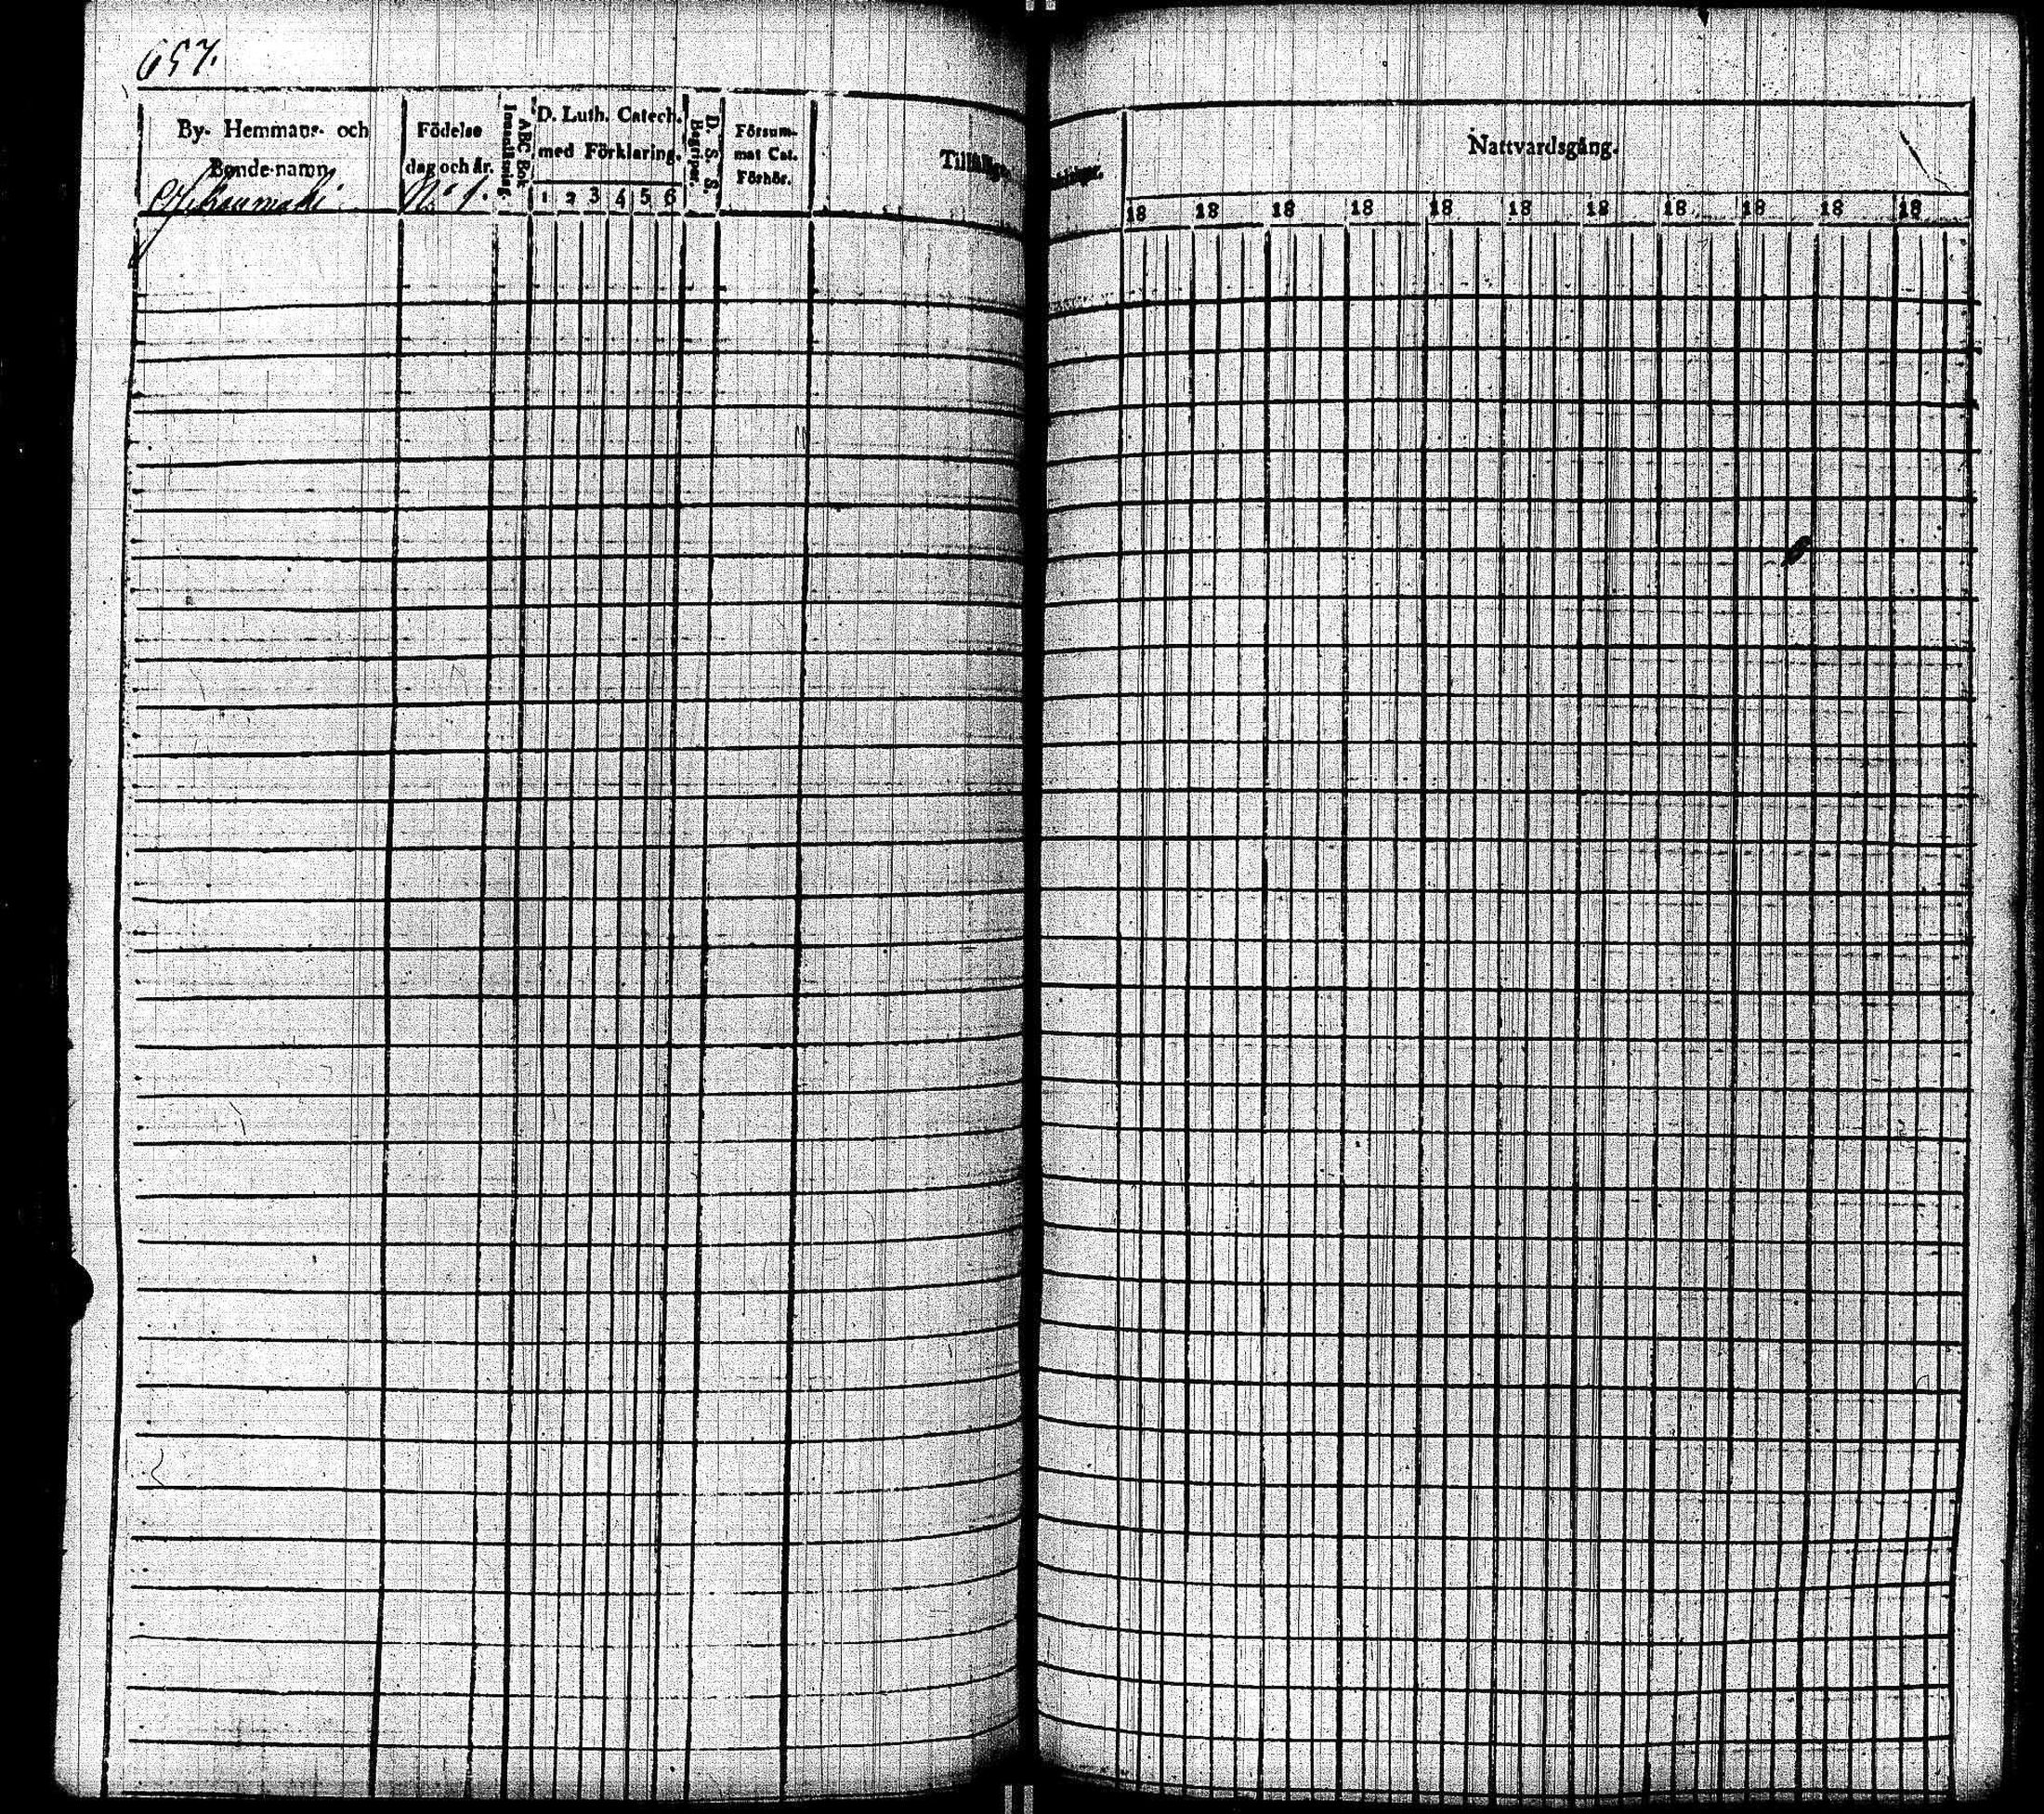 657.
By- Hemmans- och
Bonde-namn
Födelse
dag och år.
No 1.
Innanläsning.
ABC Bok
D. Luth. Catech.
med Förklaring.
1 2 3 4 5 6
D. S. S.
Begriper.
Försum-
mat Cat.
Förhör.
Nattvardsgång.
18 18 18 18 18 18 18 18 18 18 18